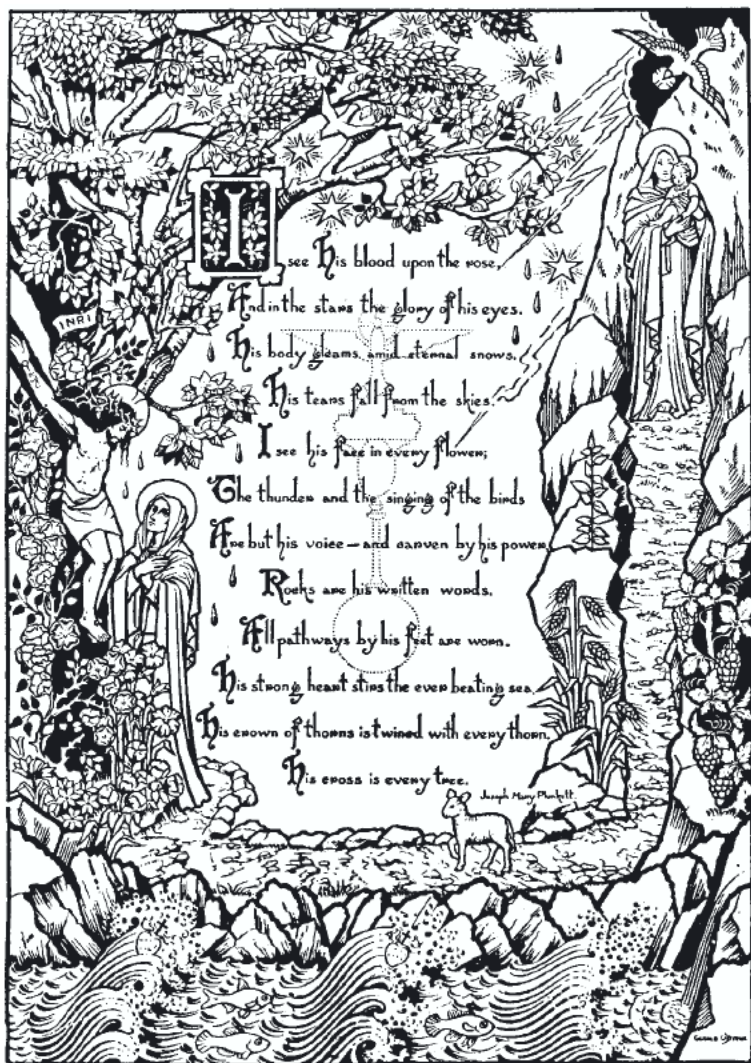 INRI
I see his blood upon the rose,
And in the stars the glory of his eyes.
His body gleams amid eternal snows,
His tears fall from the skies.
I see his face in every flower;
The thunder and the singing of the birds
Are but his voice — and carven by his power
Rocks are his written words.
All pathways by his feet are worn.
His strong heart stirs the ever beating sea.
His crown of thorns is twined with every thorn.
His cross is every tree.
Joseph Mary Plunkett